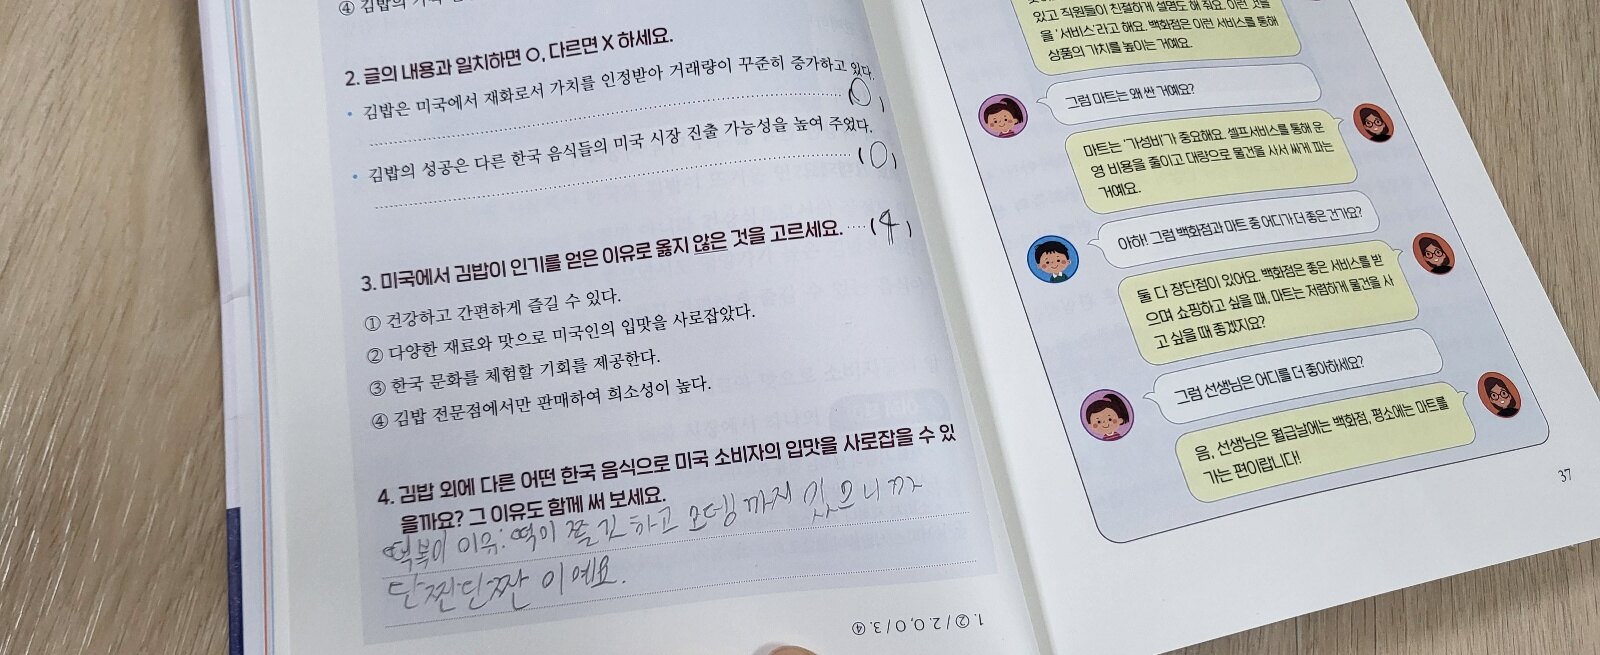 ④ 김밥의
2. 글의 내용과 일치하면 O, 다르면 X 하세요.
• 김밥은 미국에서 재화로서 가치를 인정받아 거래량이 꾸준히 증가하고 있다.
(O)
• 김밥의 성공은 다른 한국 음식들의 미국 시장 진출 가능성을 높여 주었다.
(O)
3. 미국에서 김밥이 인기를 얻은 이유로 옳지 않은 것을 고르세요. ···· (4)
① 건강하고 간편하게 즐길 수 있다.
② 다양한 재료와 맛으로 미국인의 입맛을 사로잡았다.
③ 한국 문화를 체험할 기회를 제공한다.
④ 김밥 전문점에서만 판매하여 희소성이 높다.
4. 김밥 외에 다른 어떤 한국 음식으로 미국 소비자의 입맛을 사로잡을 수 있
을까요? 그 이유도 함께 써 보세요.
떡볶이 이유: 떡이 쫄깃하고 오뎅까지 있으니까
단짠단짠이예요.
1. ② / 2. O, O / 3. ④
있고 직원들이 친절하게 설명도 해 줘요. 이런 것들
을 '서비스'라고 해요. 백화점은 이런 서비스를 통해
상품의 가치를 높이는 거예요.
그럼 마트는 왜 싼 거예요?
마트는 '가성비'가 중요해요. 셀프서비스를 통해 운
영 비용을 줄이고 대량으로 물건을 사서 싸게 파는
거예요.
아하! 그럼 백화점과 마트 중 어디가 더 좋은 건가요?
둘 다 장단점이 있어요. 백화점은 좋은 서비스를 받
으며 쇼핑하고 싶을 때, 마트는 저렴하게 물건을 사
고 싶을 때 좋겠지요?
그럼 선생님은 어디를 더 좋아하세요?
음, 선생님은 월급날에는 백화점, 평소에는 마트를
가는 편이랍니다!
37